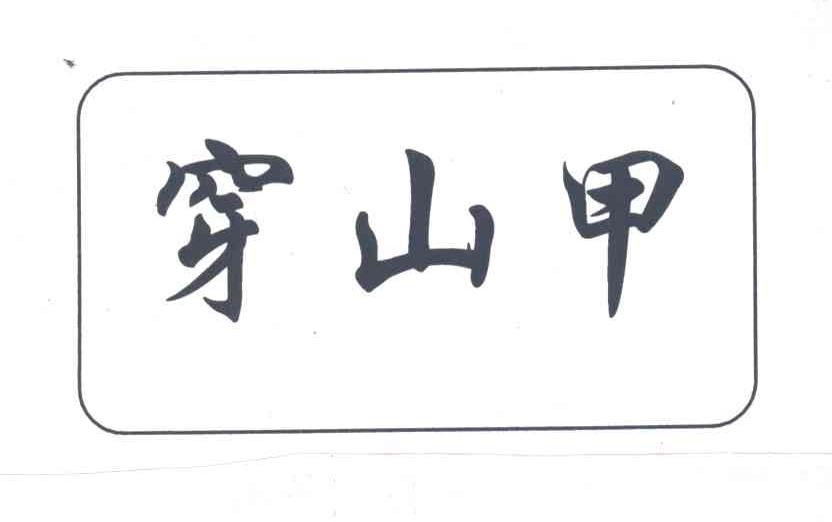 穿山甲